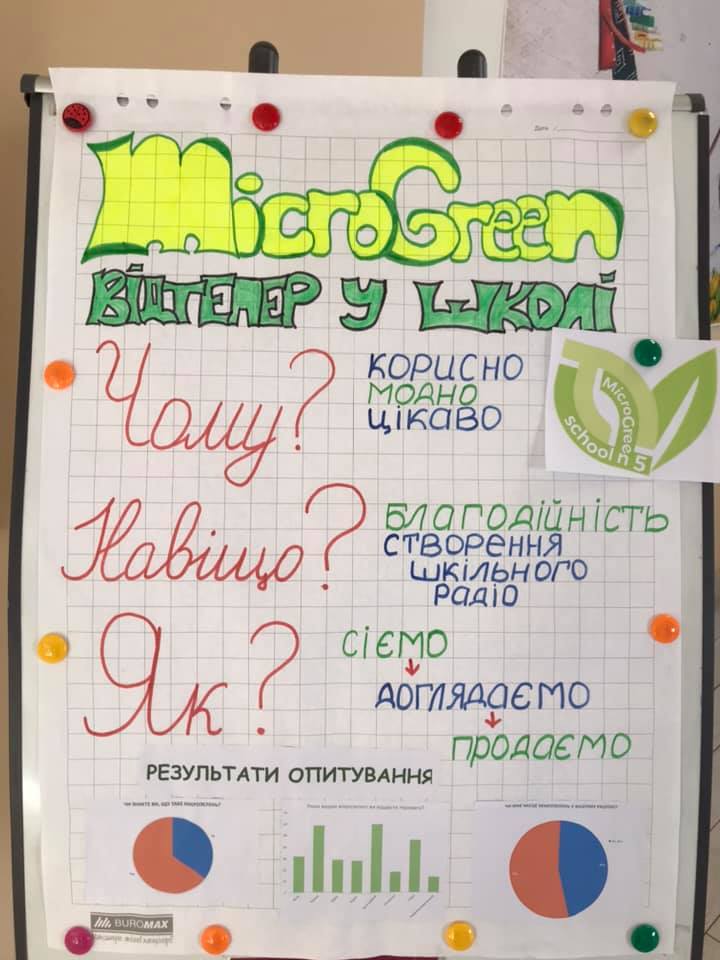 Дата
MicroGreen
ВІДТЕПЕР У ШКОЛІ
Чому?
КОРИСНО
МОДНО
ЦІКАВО
MicroGreen
school n 5
Навіщо?
БЛАГОДІЙНІСТЬ
СТВОРЕННЯ
ШКІЛЬНОГО
РАДІО
Як?
СІЄМО
ДОГЛЯДАЄМО
ПРОДАЄМО
РЕЗУЛЬТАТИ ОПИТУВАННЯ
ЧИ ЗНАЄТЕ ВИ, ЩО ТАКЕ МІКРОЗЕЛЕНЬ?
BUROMAX